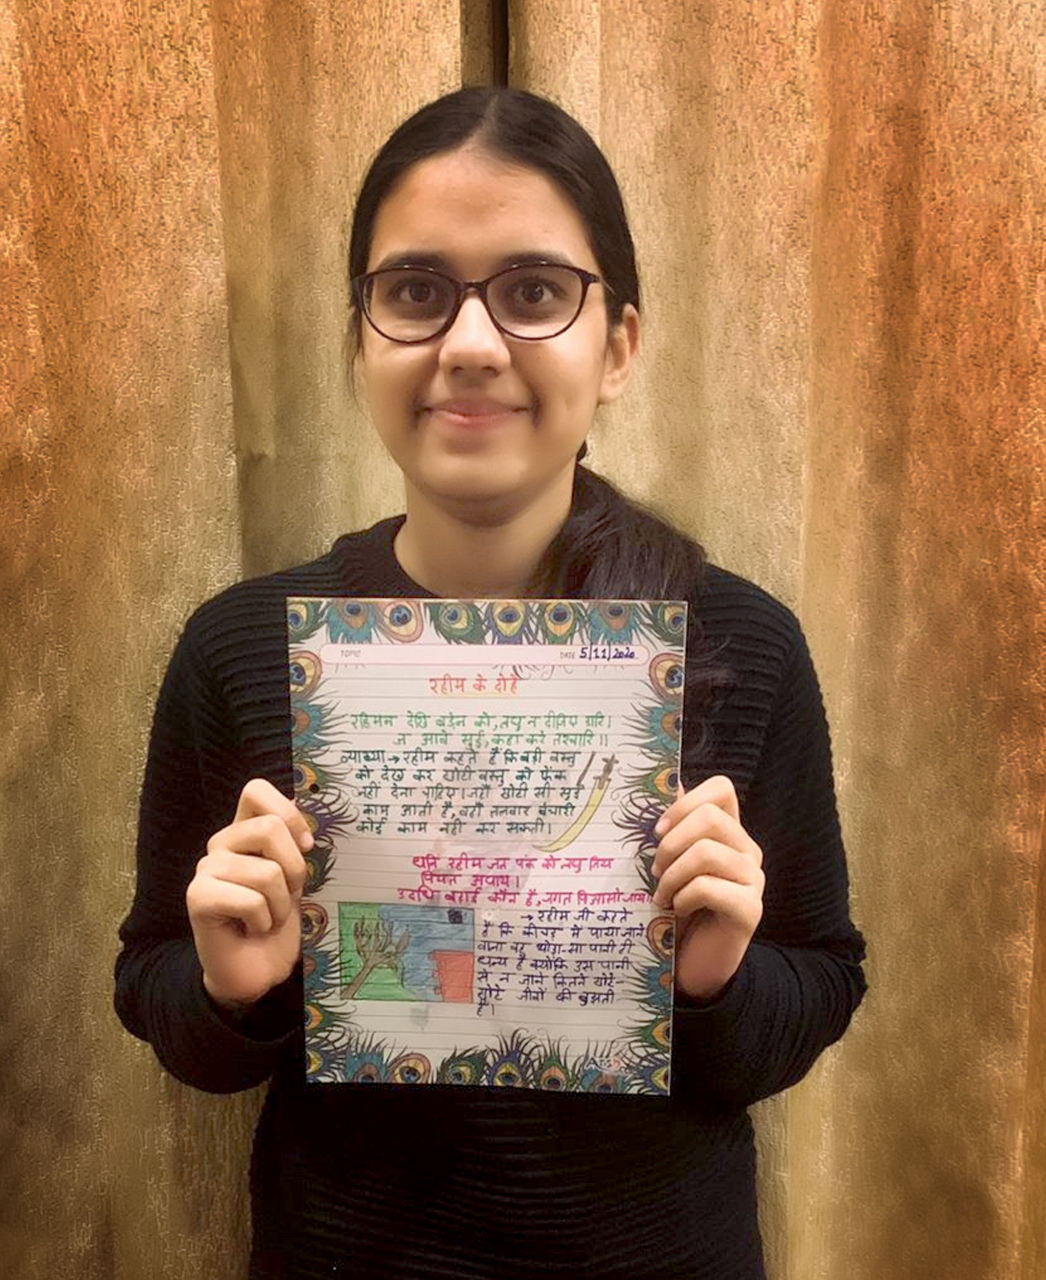 TOPIC
DATE 5/11/2020
रहीम के दोहे
रहिमन देखि बड़ेन को, लघु न दीजिए डारि।
न आवे सुई, कहा करे तरवारि॥
व्याख्या → रहीम कहते हैं कि बड़ी वस्तु
को देख कर छोटी वस्तु को फेंक
नहीं देना चाहिए। जहाँ छोटी सी सुई
काम आती है, वहाँ तलवार बेचारी
कोई काम नही कर सकती।
धनि रहीम जल पंक को लघु जिय
पियत अघाय।
उदधि बड़ाई कौन है, जगत पिआसो जाय॥
→ रहीम जी कहते
हैं कि कीचड़ में पाया जाने
वाला वह थोड़ा-सा पानी ही
धन्य है क्योंकि उस पानी
से न जाने कितने छोटे-
छोटे जीवों की बुझती
है।